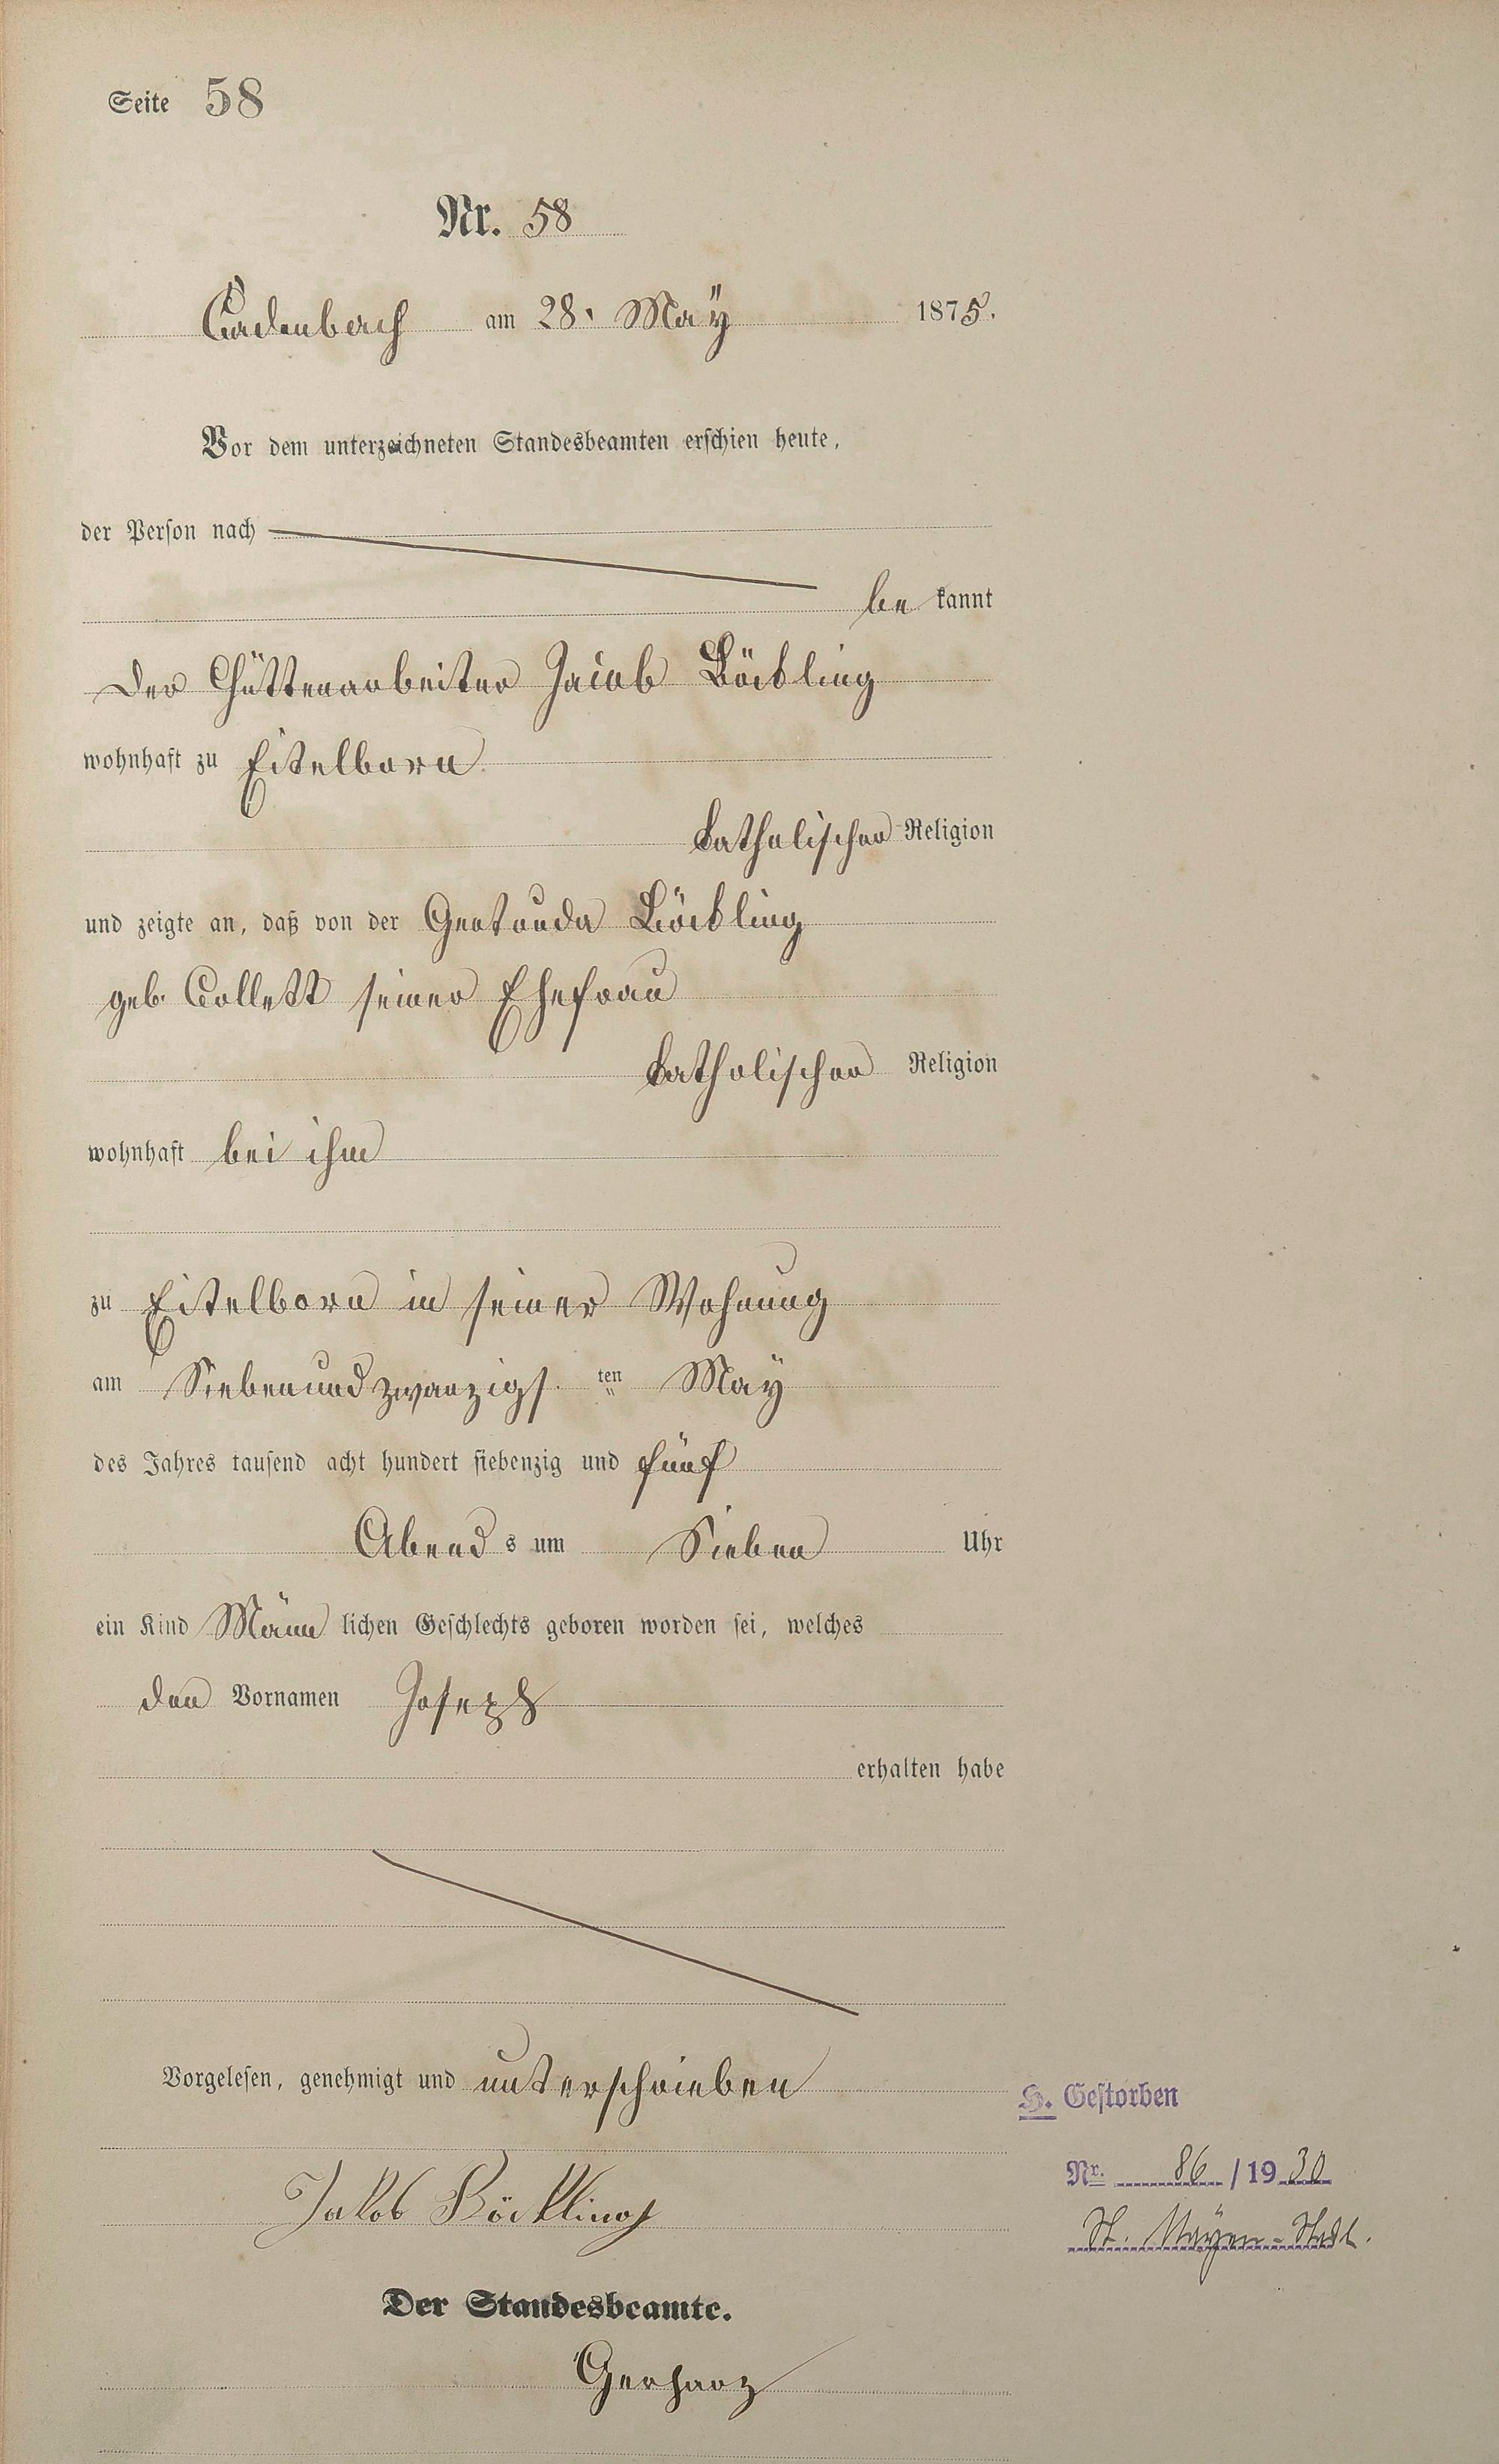 Seite 58
Nr. 58
Cadenbach am 28. Maÿ 1875.
Vor dem unterzeichneten Standesbeamten erschien heute,
der Person nach
be kannt
Der Hüttenarbeiter Jacob Böckling
wohnhaft zu Eitelborn
katholischer Religion
und zeigte an, daß von der Gertruda Böckling
geb. Collett seiner Ehefrau
katholischer Religion
wohnhaft bei ihm
zu Eitelborn in seiner Wohnung
am Siebenundzwanzigs. ten May
des Jahres tausend acht hundert siebenzig und fünf
Abend s um Sieben Uhr
ein Kind Männ lichen Geschlechts geboren worden sei, welches
den Vornamen Joseph
erhalten habe
Vorgelesen, genehmigt und unterschrieben
Jakob Böckling
H. Gestorben
Nr. 86 / 1930
St. Mayen-Stadt.
Der Standesbeamte.
Gerharz